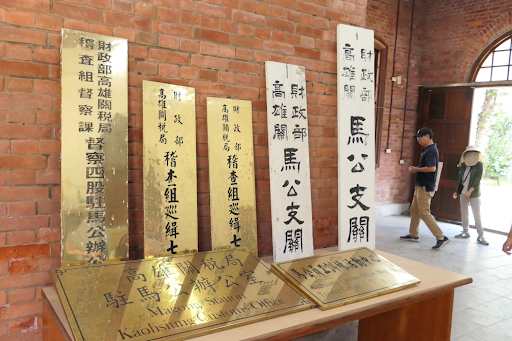 財政部高雄關稅局
稽查組督察課
督察四股駐馬公辦公
財政部
高雄關稅局
稽查組巡緝七
財政部
高雄關稅局
稽查組巡緝
財政部
高雄關
馬公支關
財政部
高雄關
馬公支關
高雄關稅局
駐馬公辦公室
Magong Station
Kaohsiung Customs Office